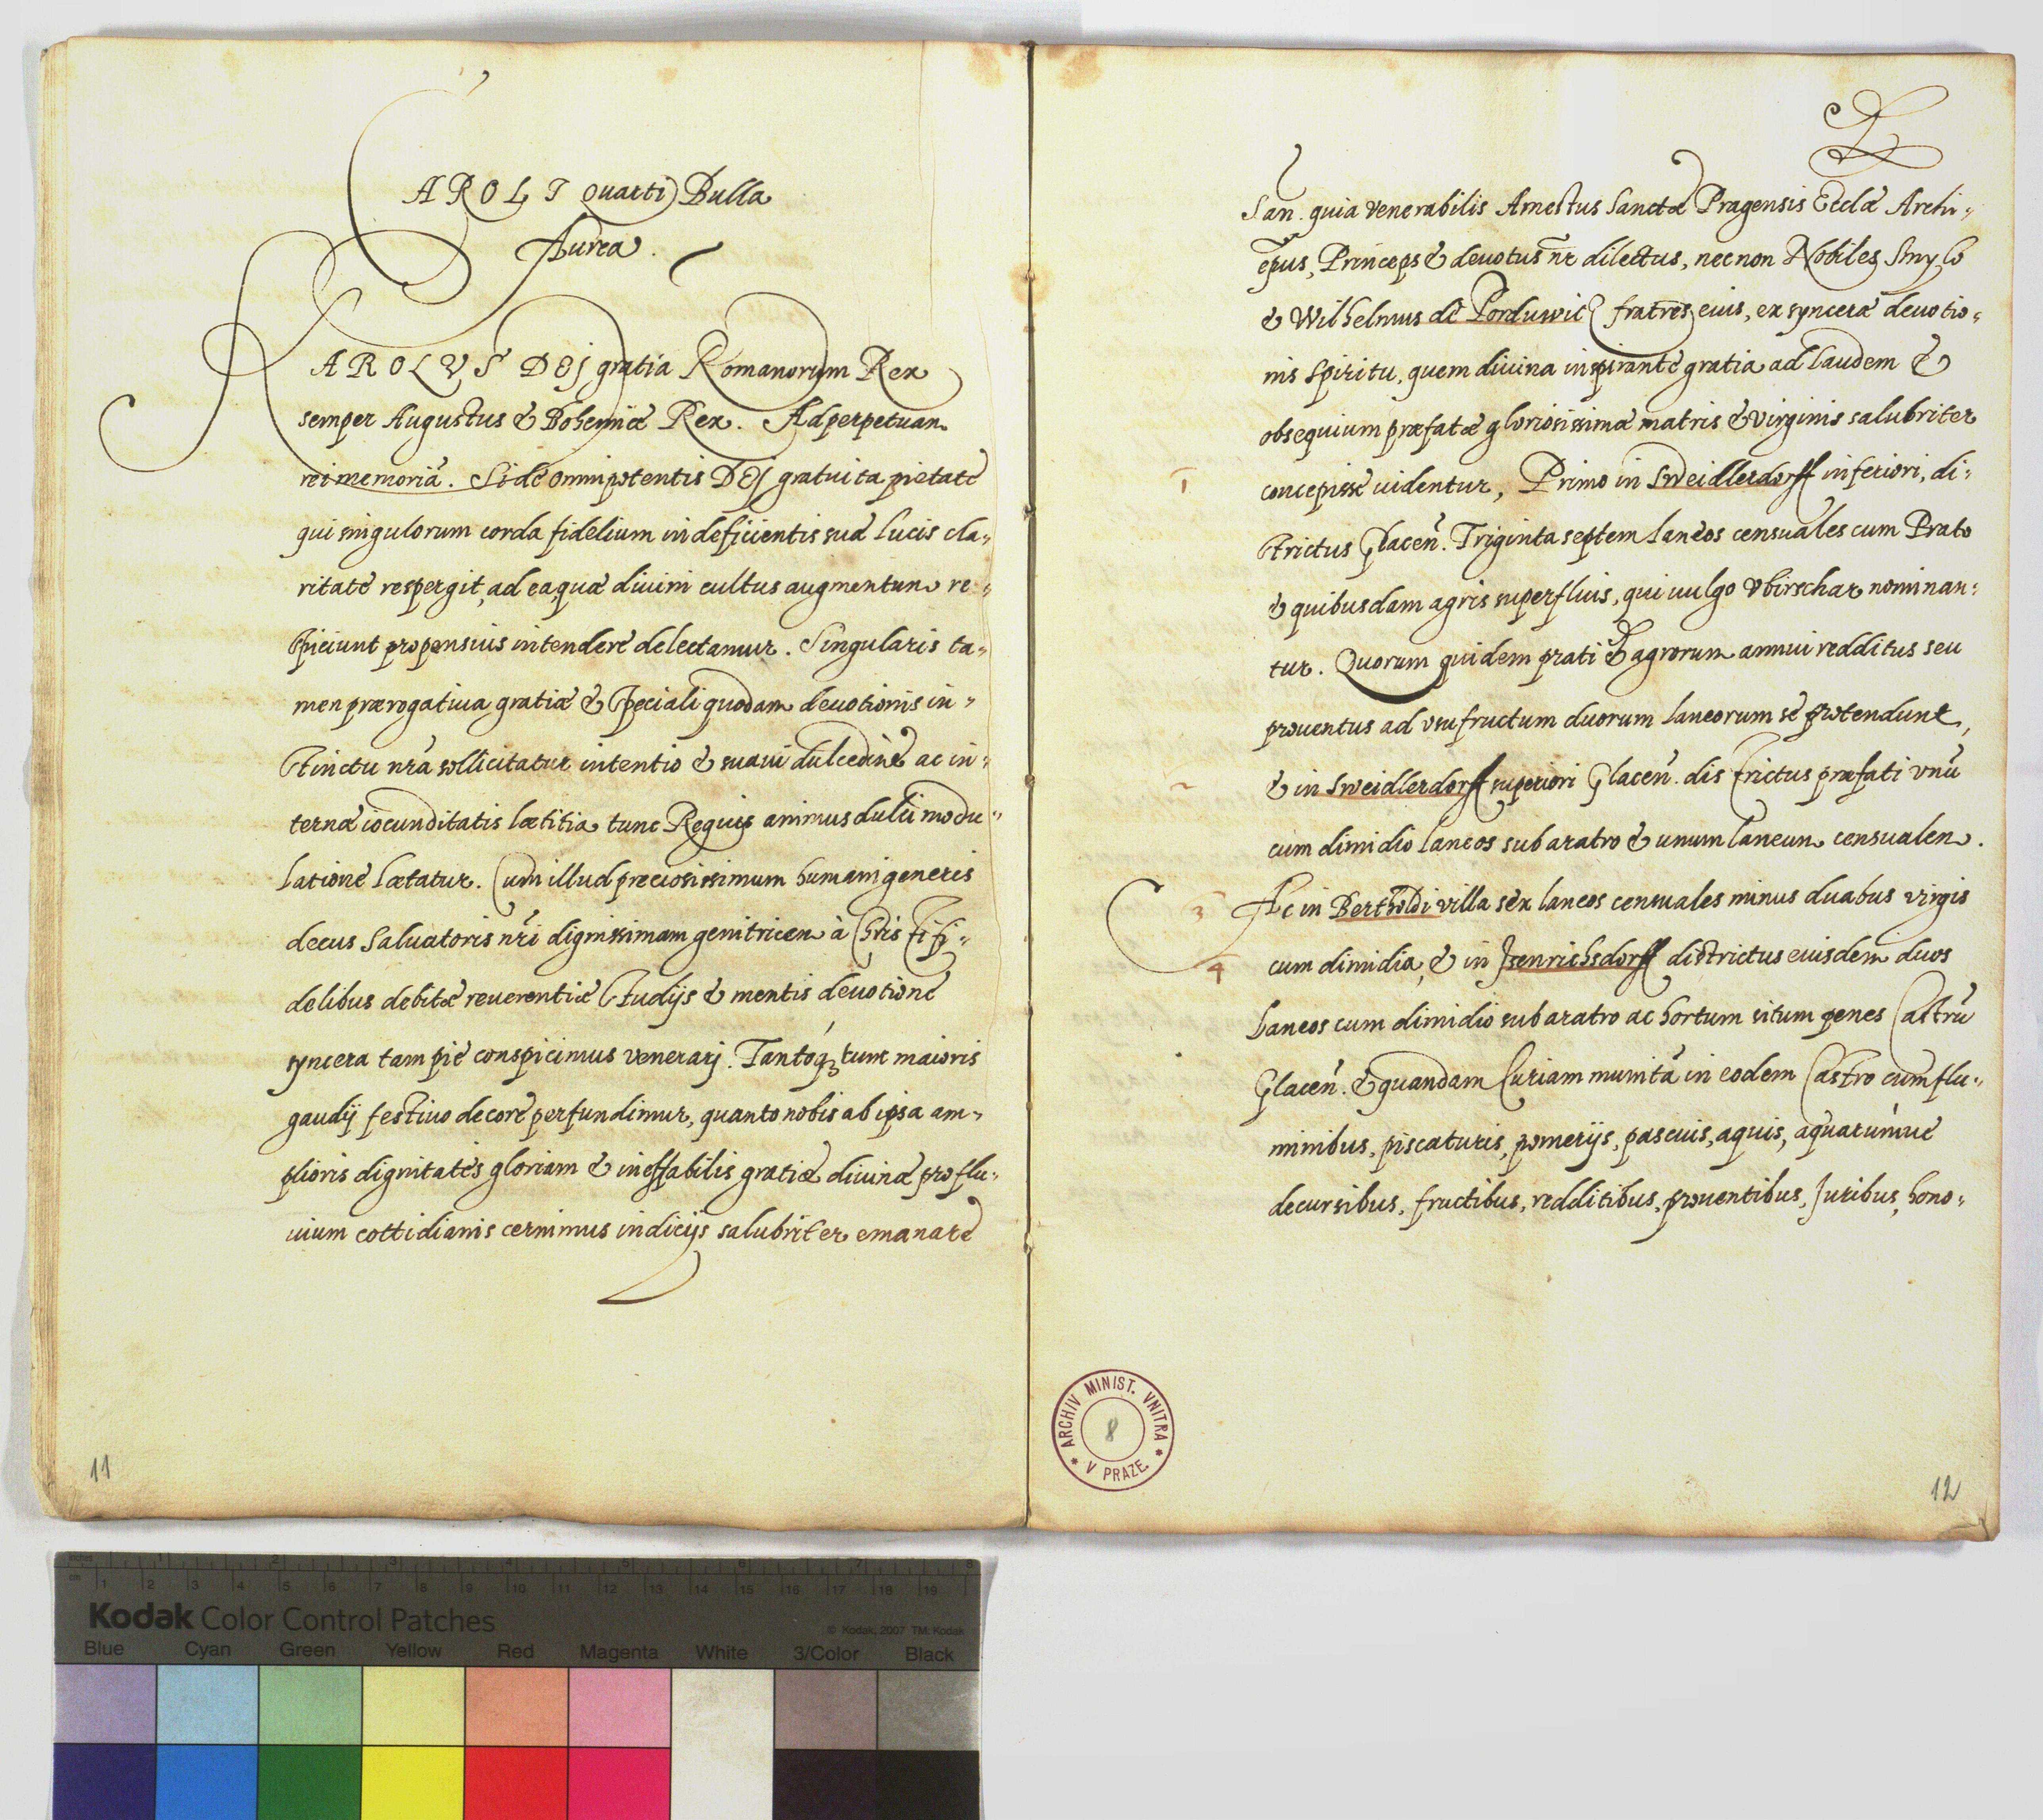 CAROLI Quarti Bulla
Aurea.
CAROLVS DEI gratia Romanorum Rex
semper Augustus & Bohemiæ Rex. Ad perpetuam
rei memoriā. Si de omnipotentis DEI gratuita pietate
qui singulorum corda fidelium indeficientis suæ lucis cla-
ritate respergit, ad ea, quæ diuini cultus augmentum re-
spiciunt propensius intendere delectamur. Singularis ta-
men prærogatiua gratiæ & speciali quodam deuotionis in-
stinctu nr̄a sollicitatur intentio & suaui dulcedine ac in-
ternæ iocunditatis lætitia tunc Regius animus dulci modu-
latione lætatur. Cum illud preciosissimum humani generis
decus Saluatoris nr̄i dignissimam genitricem à Chris ti fi-
delibus debitæ reuerentiæ studijs & mentis deuotione
syncera tam pie conspicimus venerarj. Tantoq3 tunc maioris
gaudij festiuo decore perfundimur, quanto nobis ab ipsa am-
plioris dignitates gloriam & ineffabilis gratiæ diuinæ proflu-
uium cottidianis cernimus indicijs salubriter emanare
11
San. quia venerabilis Arnestus Sanctæ Pragensis Eccl̄æ Archi-
ep̄us, Princeps & deuotus nr̄ dilectus, nec non Nobiles Smylo
& Wilhelmus de Porduwicz fratres eius, ex syncera deuotio-
nis spiritu, quem diuina inspirante gratia ad laudem &
obsequium præfatæ gloriosissimæ matris & virginis salubriter
1 concepisse uidentur, Primo in Sweidlerdorff inferiori, di-
strictus Glacen̄. Triginta septem laneos censuales cum Prato
& quibusdam agris superfluis, qui uulgo Vbirschar nominan-
tur. Quorum quidem prati & agrorum annui redditus seu
prouentus ad vsufructum duorum laneorum se protendunt,
2 & in Sweidlerdorff superiori Glacen̄. districtus præfati vnū
cum dimidio laneos sub aratro & unum laneum censualem.
3 Ac in Bertholdi villa sex laneos censuales minus duabus virgis
4 cum dimidia, & in Jsenrichsdorff districtus eiusdem duos
laneos cum dimidio sub aratro ac hortum situm penes Castrū
Glacen̄. & quandam Curiam munitā in eodem Castro cum flu-
minibus, piscaturis, pomerijs, pascuis, aquis, aquarumue
decursibus, fructibus, redditibus, prouentibus, Juribus, hono-
ARCHIV MINIST. VNITRA
* V PRAZE *
8
12
Kodak Color Control Patches
© Kodak, 2007 TM: Kodak
Blue Cyan Green Yellow Red Magenta White 3/Color Black